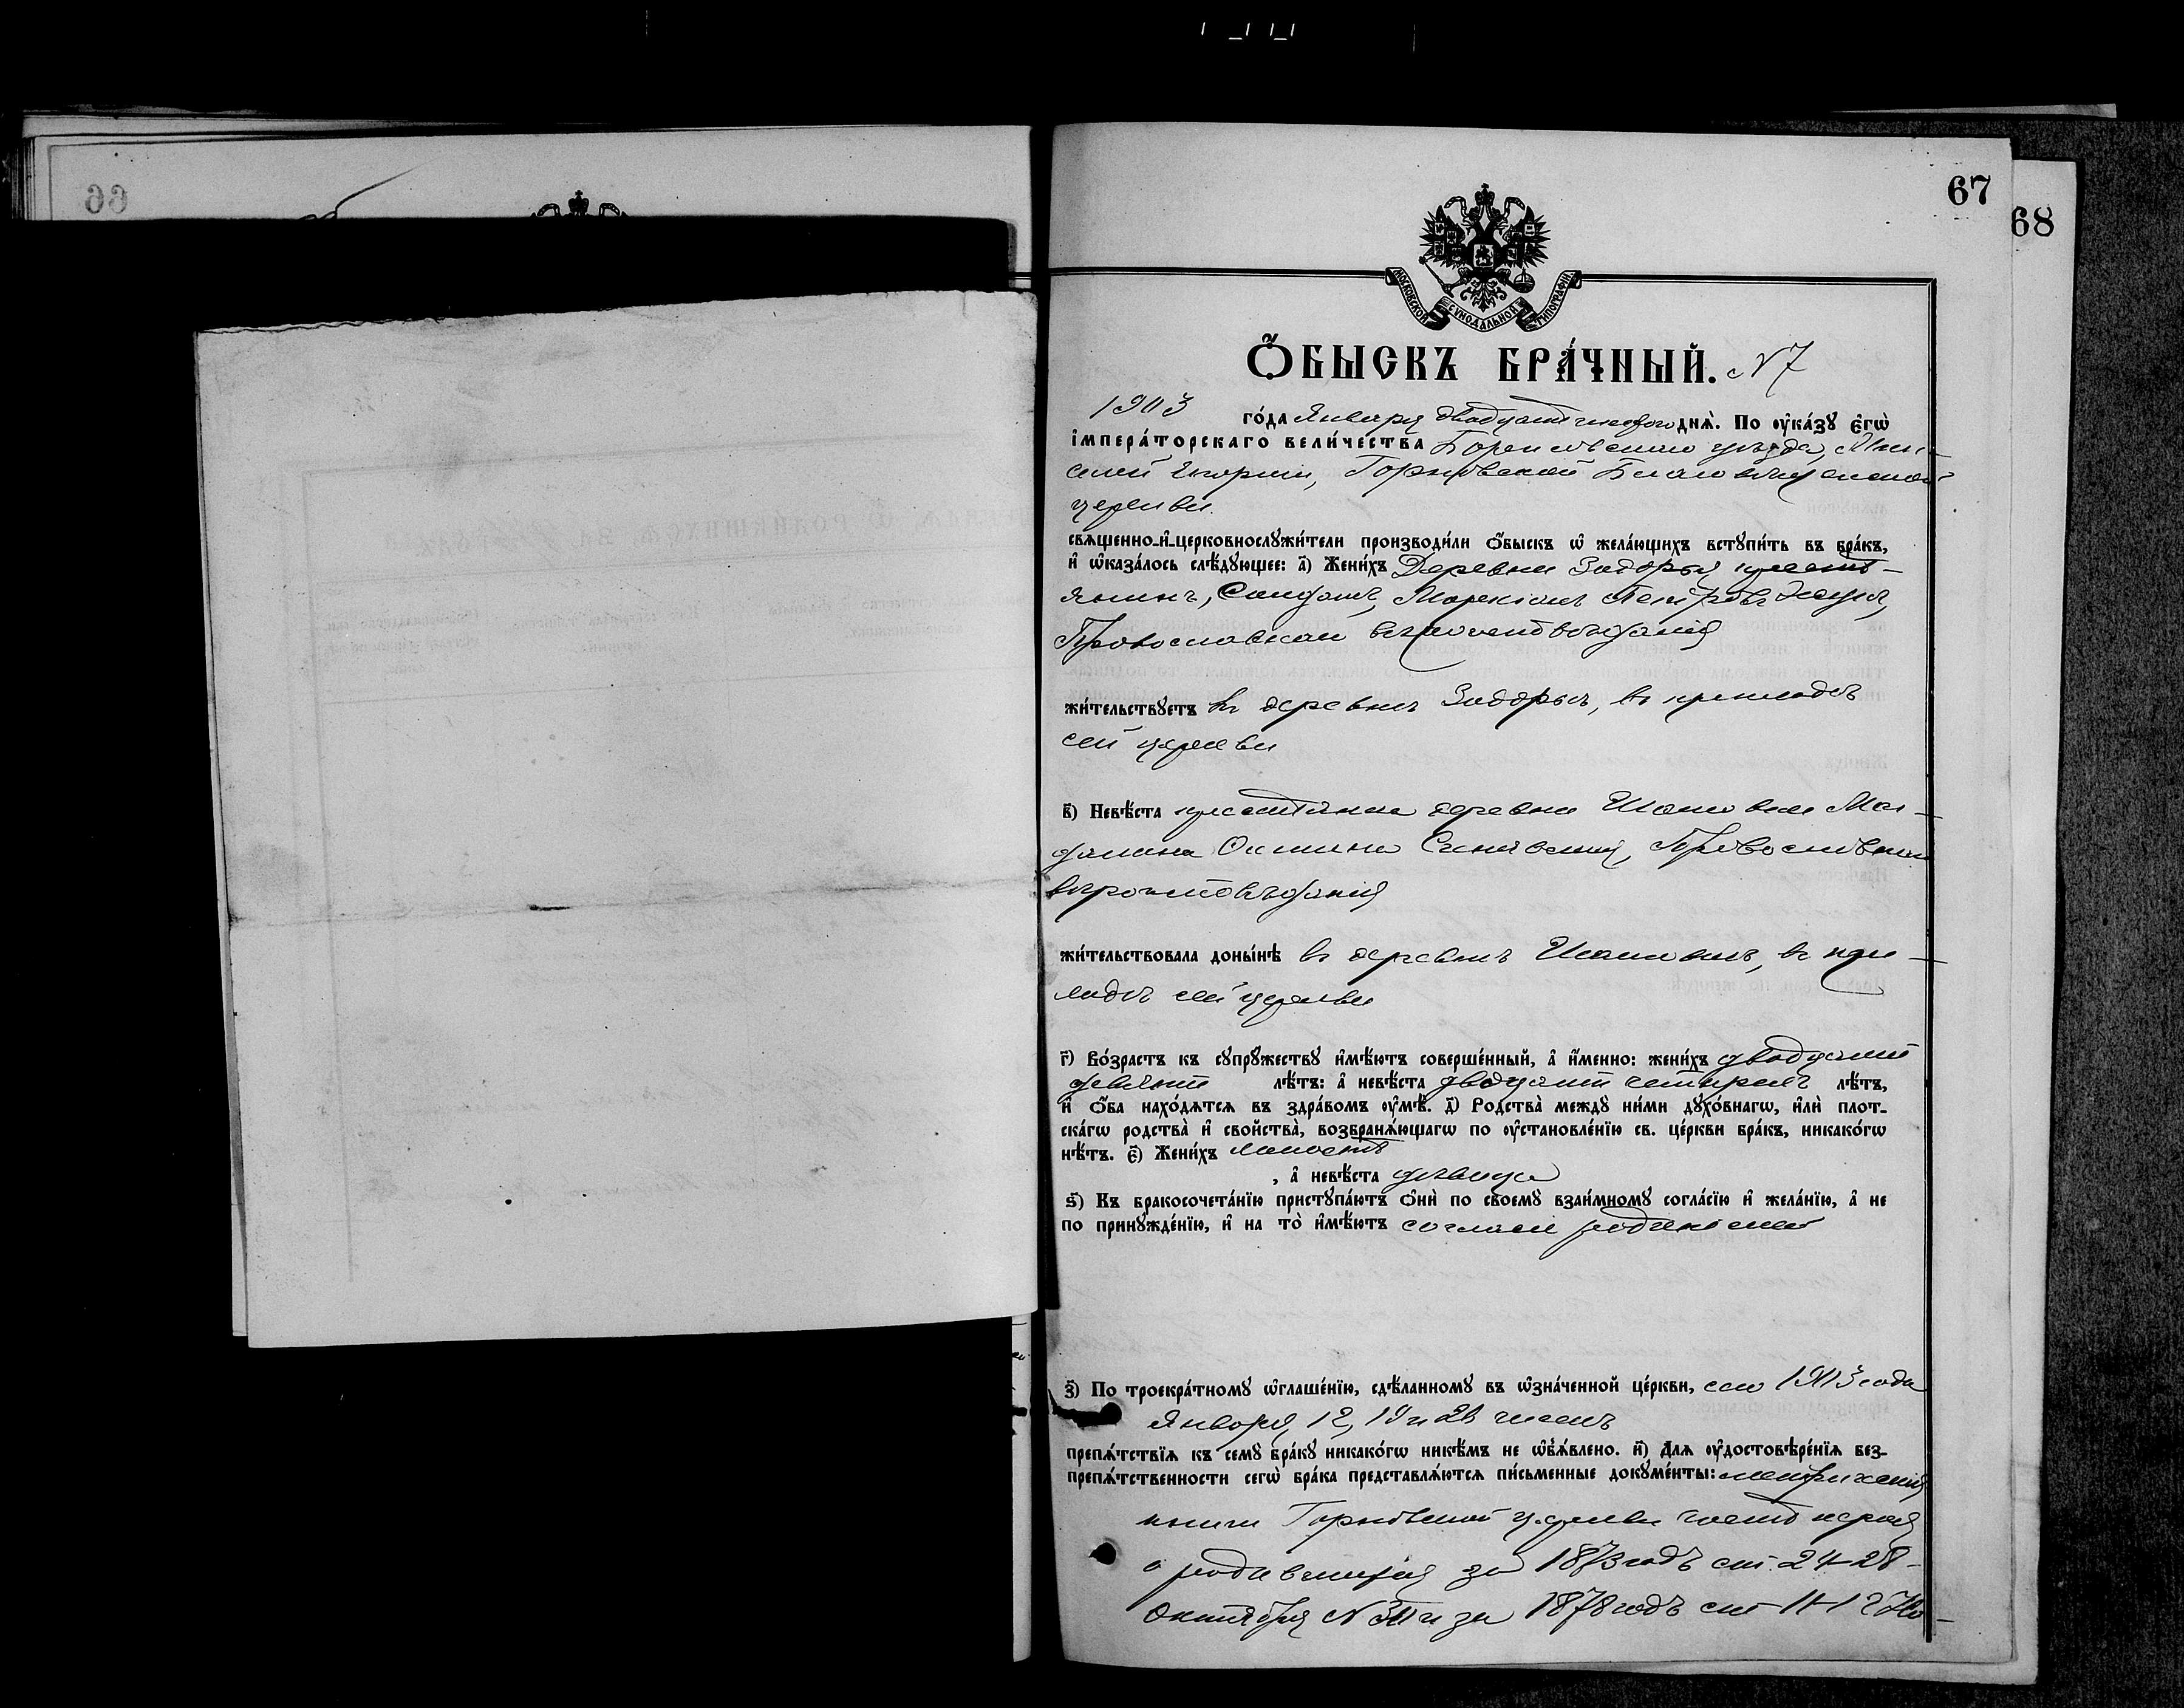 66
67
68
МОСКОВСКОЙ СѴНОДАЛЬНОЙ ТИПОГРАФІИ
Ѻ҆БЫСКЪ БРА́ЧНЫЙ. N 7
1903 го́да Января двадцать шестого днѧ̀. По ᲂу҆ка́зꙋ є҆гѡ̀
і҆мпера́торскагѡ вели́чества Борисовскаго уѣзда, Мин-
ской губернии, Благовѣщенской
церкви.
свѧще́нно-и҆-церковнослꙋжи́тели производи́ли ѻ҆́быскъ ѡ҆ жела́ющихъ встꙋпи́ть въ бра́къ,
и҆ ѡ҆каза́лось слѣ́дꙋющее: а҃) Жени́хъ Деревни Задорья крестья-
янинъ, Петровъ
Православнаго вѣроисповѣданія
жи́тельствꙋетъ въ деревнѣ Задорьѣ, въ приходѣ
сей церкви
в҃) Невѣ́ста крестьянка деревни Мог-
далина Православнаго
вѣроисповѣданія
жи́тельствовала доны́нѣ въ деревнѣ въ при-
ходѣ сей церкви
г҃) Во́зрастъ къ сꙋпрꙋ́жествꙋ и҆мѣ́ютъ соверше́нный, а҆ и҆́менно: жени́хъ двадцати
девяти лѣ́тъ: а҆ невѣ́ста двадцати четырехъ лѣ́тъ,
и҆ ѻ҆́ба нахо́дѧтсѧ въ здра́вомъ ᲂу҆мѣ̀. д҃) Родства̀ междꙋ̀ ни́ми дꙋхо́внагѡ, и҆лѝ плот-
ска́гѡ родства̀ и҆ свойства̀, возбранѧ́ющагѡ по ᲂу҆становле́нїю св. це́ркви бра́къ, никако́гѡ
нѣ́тъ. є҃) Жени́хъ холостъ
, а҆ невѣ́ста дѣвица
ѕ҃) Къ бракосочета́нїю пристꙋпа́ютъ ѻ҆нѝ по своемꙋ̀ взаи́мномꙋ согла́сїю и҆ жела́нїю, а҆ не
по принꙋжде́нїю, и҆ на то̀ и҆мѣ́ютъ согласіе родителей
з҃) По троекра́тномꙋ ѡ҆глаше́нїю, сдѣ́ланномꙋ въ ѡ҆зна́ченной це́ркви, сего 1903 года
Января, 12, 19 и 26 чиселъ
препѧ́тствїѧ къ семꙋ̀ бра́кꙋ никако́гѡ никѣ́мъ не ѡ҆б̾ѧ́влено. и҃) Длѧ ᲂу҆достовѣре́нїѧ без-
препѧ́тственности сегѡ̀ бра́ка представлѧ́ютсѧ пи́сьменные докꙋме́нты: метрическія
книги церкви часть первая
о родившихся за 1873 годъ ст. 24-28
Октября N и за 1878 годъ ст